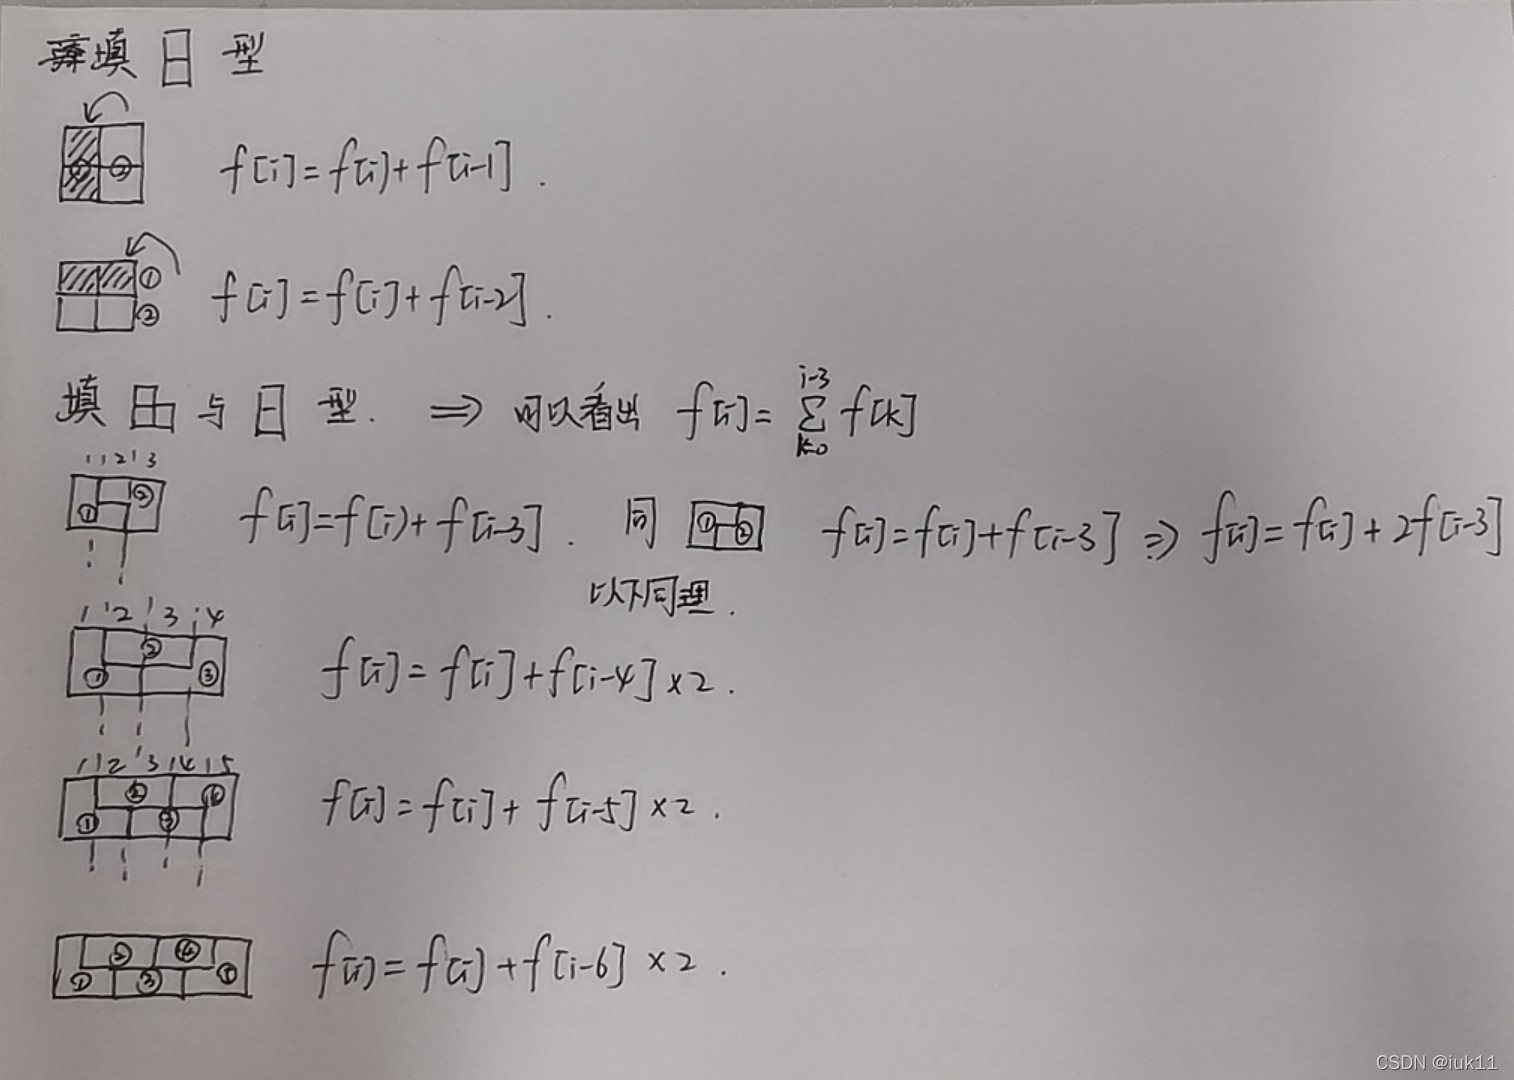 填日型
f[i]=f[i]+f[i-1].
① ② f[i]=f[i]+f[i-2].
填 与日型. ⇒ 可以看出 f[i]=∑_{k=0}^{i-3} f[k]
1 2 3
① ② f[i]=f[i)+f[i-3]. 同 ① ② f[i]=f[i]+f[i-3] ⇒ f[i]=f[i]+2f[i-3]
以下同理.
1 2 3 4
① ② ③ f[i]=f[i]+f[i-4]×2.
1 2 3 4 5
① ② ③ f[i]=f[i]+f[i-5]×2.
③ ④ f[i]=f[i]+f[i-6]×2.
CSDN @iuk11